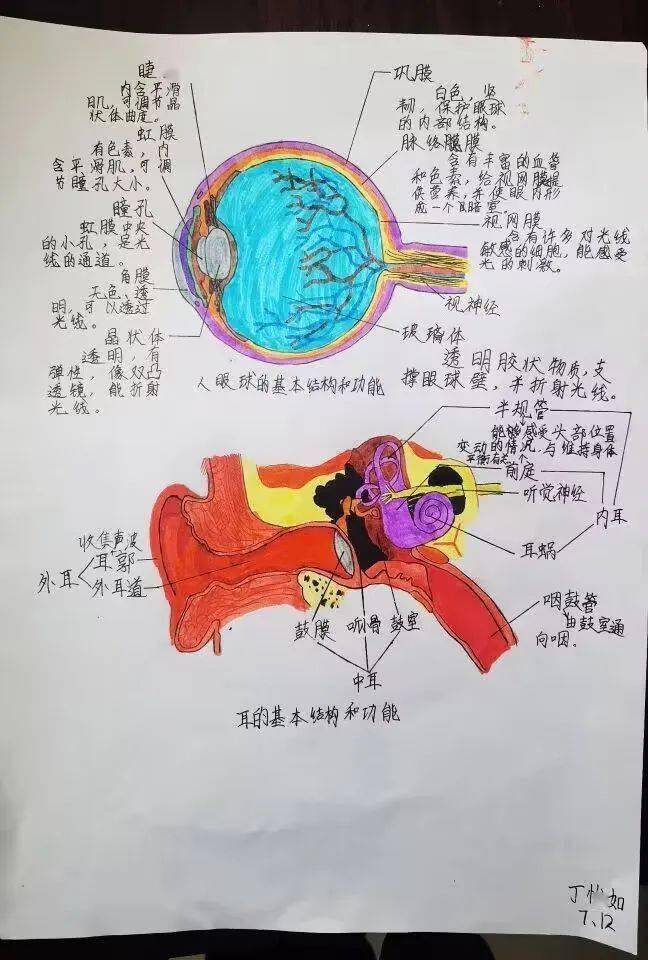 睫
内含平滑
肌,可调节晶
状体曲度。
虹膜
有色素,内
含平滑肌,可调
节瞳孔大小。
瞳孔
虹膜中央
的小孔,是光
线的通道。
角膜
无色、透
明,可以透过
光线。
晶状体
透明,有
弹性,像双凸
透镜,能折射
光线。
巩膜
白色,坚
韧,保护眼球
的内部结构。
脉络膜
含有丰富的血管
和色素,给视网膜提
供营养,并使眼内形
成一个暗室。
视网膜
含有许多对光线
敏感的细胞,能感受
光的刺激。
视神经
玻璃体
透明胶状物质,支
撑眼球壁,并折射光线。
人眼球的基本结构和功能
半规管
能够感受头部位置
变动的情况,与维持身体
平衡有关
前庭
听觉神经
内耳
耳蜗
收集声波
耳郭
外耳
外耳道
鼓膜
听骨
鼓室
中耳
咽鼓管
由鼓室通
向咽。
耳的基本结构和功能
丁
如
7、12